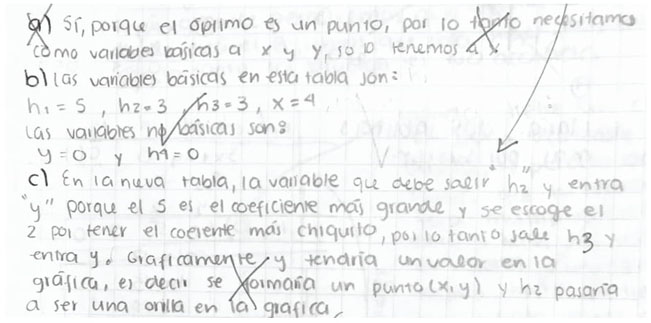 a) Sí, porque el óptimo es un punto, por lo tanto necesitamos
como variables básicas a x y y, solo tenemos a x.
b) las variables básicas en esta tabla son:
h1 = 5 , h2 = 3 , h3 = 3 , x = 4
Las variables no básicas son:
y = 0 y h4 = 0
c) En la nueva tabla, la variable que debe salir "h2" y entra
"y" porque el 5 es el coeficiente más grande y se escoge el
2 por tener el coeiente más chiquito, por lo tanto sale h3 y
entra y. Graficamente y tendría un valor en la
gráfica, es decir se formaría un punto (x,y) y h2 pasaría
a ser una orilla en la grafica.